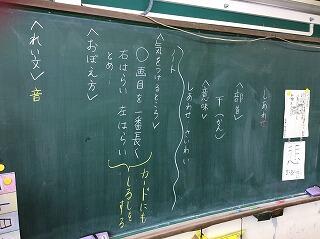 しあわせ
〈部首〉
干(かん)
〈意味〉
しあわせ さいわい
ノート
〈気をつけるところ〉
〇画目を一番長く
右はらい 左はらい
とめ
カードにも
しるしを
する
〈おぼえ方〉
〈れい文〉 音
悲